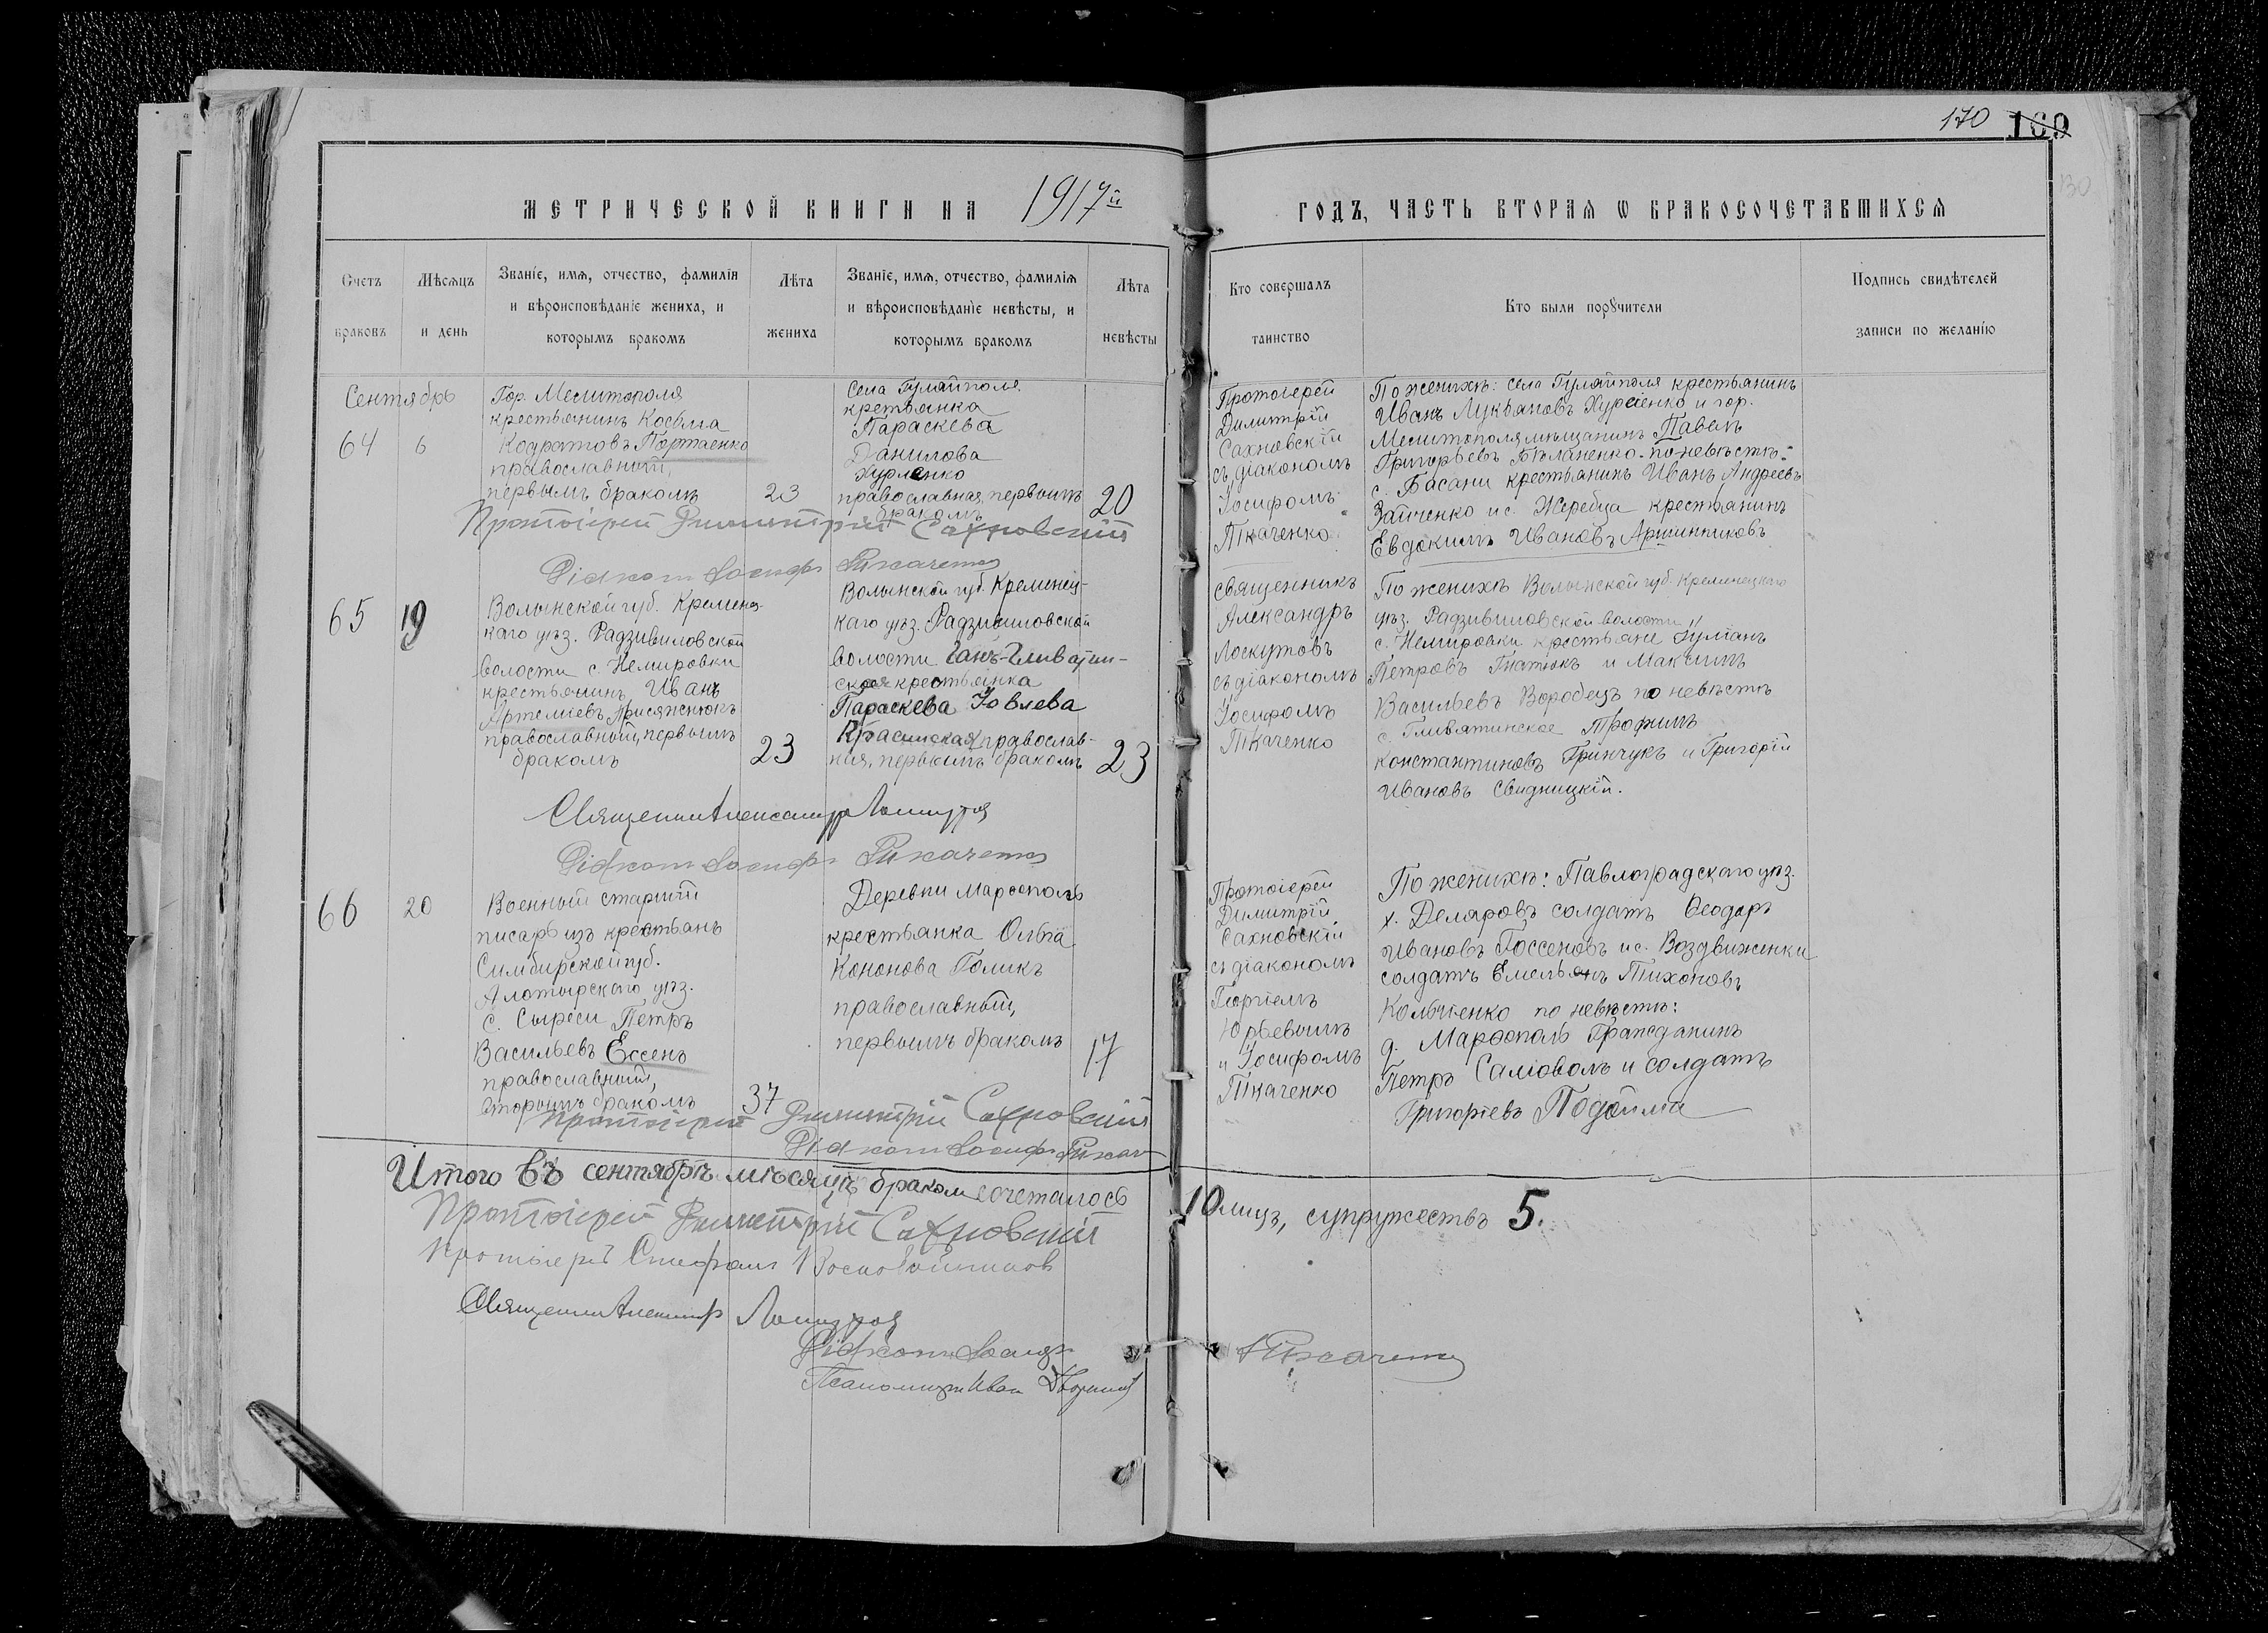 170 169
МЕТРИЧЕСКОЙ КНИГИ НА 1917й
ГОДЪ, ЧАСТЬ ВТОРАЯ Ѡ БРАКОСОЧЕТАВШИХСЯ
Счетъ браковъ
Мѣсяцъ и день
Званіе, имя, отчество, фамилія
и вѣроисповѣданіе жениха, и
которымъ бракомъ
Лѣта жениха
Званіе, имя, отчество, фамилія
и вѣроисповѣданіе невѣсты, и
которымъ бракомъ
Лѣта невѣсты
Кто совершалъ
таинство
Кто были поручители
Подпись свидѣтелей
записи по желанію
Сентябрь
64
6
Гор. Мелитополя
крестьянинъ Косьма
Кодратовъ Портаенко
православный,
первымъ бракомъ
23
Села Гуляйполе
кретьянка
Параскева
Данилова
Хурленко
православная, первымъ
бракомъ
20
Протоіерей
Димитрій
Сахновскій
съ діакономъ
Іосифомъ
Ткаченко
По женихѣ: села Гуляйполя крестьянинъ
Иванъ Лукьяновъ Хурсіенко и гор.
Мелитополя мѣщанинъ Павелъ
Григорьевъ Бѣланенко. по невѣстѣ:
с. Басани крестьянинъ Иванъ Андреевъ
Зайченко и с. Жеребца крестьянинъ
Евдокимъ Ивановъ Аршинниковъ
Протоіерей Димитрій Сахновскій
Діаконъ Іосифъ Ткаченко
65
19
Волынской губ. Кременец-
каго уѣз. Радзивиловской
волости с. Немировки
крестьянинъ Иванъ
Артеміевъ Присяжнюкъ
православный, первымъ
бракомъ
23
Волынской губ. Кременец-
каго уѣз. Радзивиловской
волости
ская крестьянка
Параскева Іовлева
Красинская, православ-
ная, первымъ бракомъ
23
священникъ
Александръ
Лоскутовъ
съ діакономъ
Іосифомъ
Ткаченко
По женихѣ Волынской губ. Кременецкаго
уѣз. Радзивиловской волости
с. Немировки крестьяне Іуліанъ
Петровъ Гнатюкъ и Максимъ
Васильевъ Воробецъ по невѣстѣ
с. Гливятинское Трофимъ
Константиновъ Гринчукъ и Григорій
Ивановъ Свидницкій.
Священникъ Александръ Лоскутовъ
Діаконъ Іосифъ Ткаченко
66
20
Военный старшій
писарь изъ крестьянъ
Симбирской губ.
Алотырского уѣз.
с. Сыреси Петръ
Васильевъ Ессенъ
православный,
вторымъ бракомъ
37
Деревни Марѳополь
крестьянка Ольга
Кононова Голикъ
православный,
первымъ бракомъ
17
Протоіерей
Димитрій
Сахновскій
съ діакономъ
Георгіемъ
Юрьевымъ
и Іосифомъ
Ткаченко
По женихѣ: Павлоградскаго уѣз.
х. Деляровъ солдатъ Ѳеодоръ
Ивановъ Госсеновъ и с. Воздвиженки
солдатъ Емельянъ Тихоновъ
Кольченко по невѣстѣ:
д. Марѳополь Гражданинъ
Петръ Саліовомъ и солдатъ
Григоріевъ Подойма
Протоіерей Димитрій Сахновскій
Діаконъ Іосифъ Ткач
Итого въ сентябрѣ мѣсяцѣ браком сочеталось
10 лицъ, супружествъ 5.
Протоіерей Димитрій Сахновскій
Протоіерей Стефанъ Воскобойниковъ
Священникъ Александръ Лоскутовъ
Діаконъ Іосифъ Ткаченко
Псаломщикъ Иван